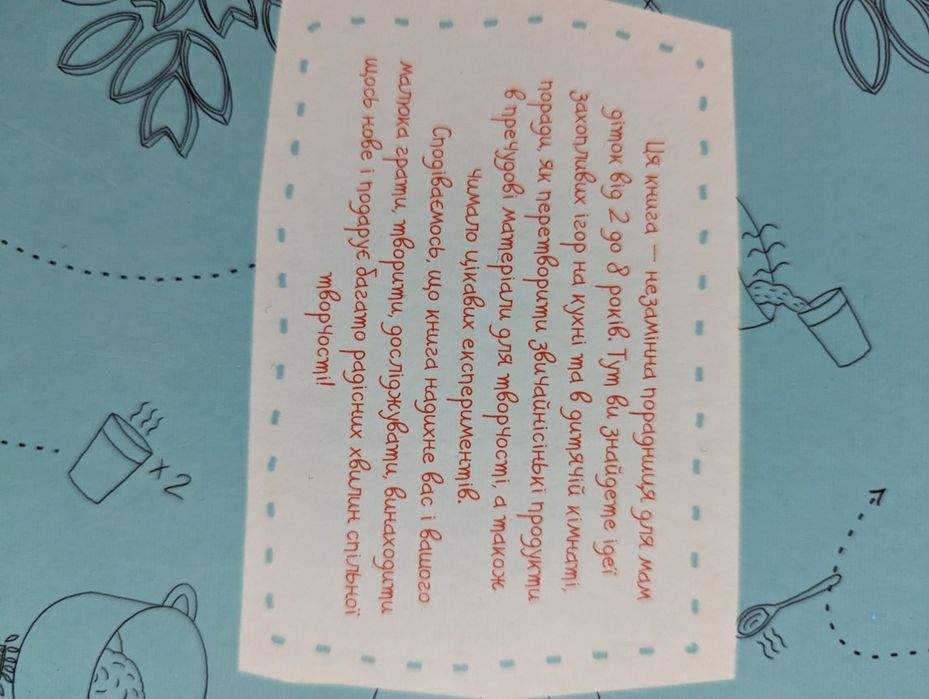 Ця книга — незамінна порадниця для мам
діток від 2 до 8 років. Тут ви знайдете ідеї
захопливих ігор на кухні та в дитячій кімнаті,
поради, як перетворити звичайнісінькі продукти
в пречудові матеріали для творчості, а також
чимало цікавих експериментів.
Сподіваємось, що книга надихне вас і вашого
малюка грати, творити, досліджувати, винаходити
щось нове і подарує багато радісних хвилин спільної
творчості!
x 2